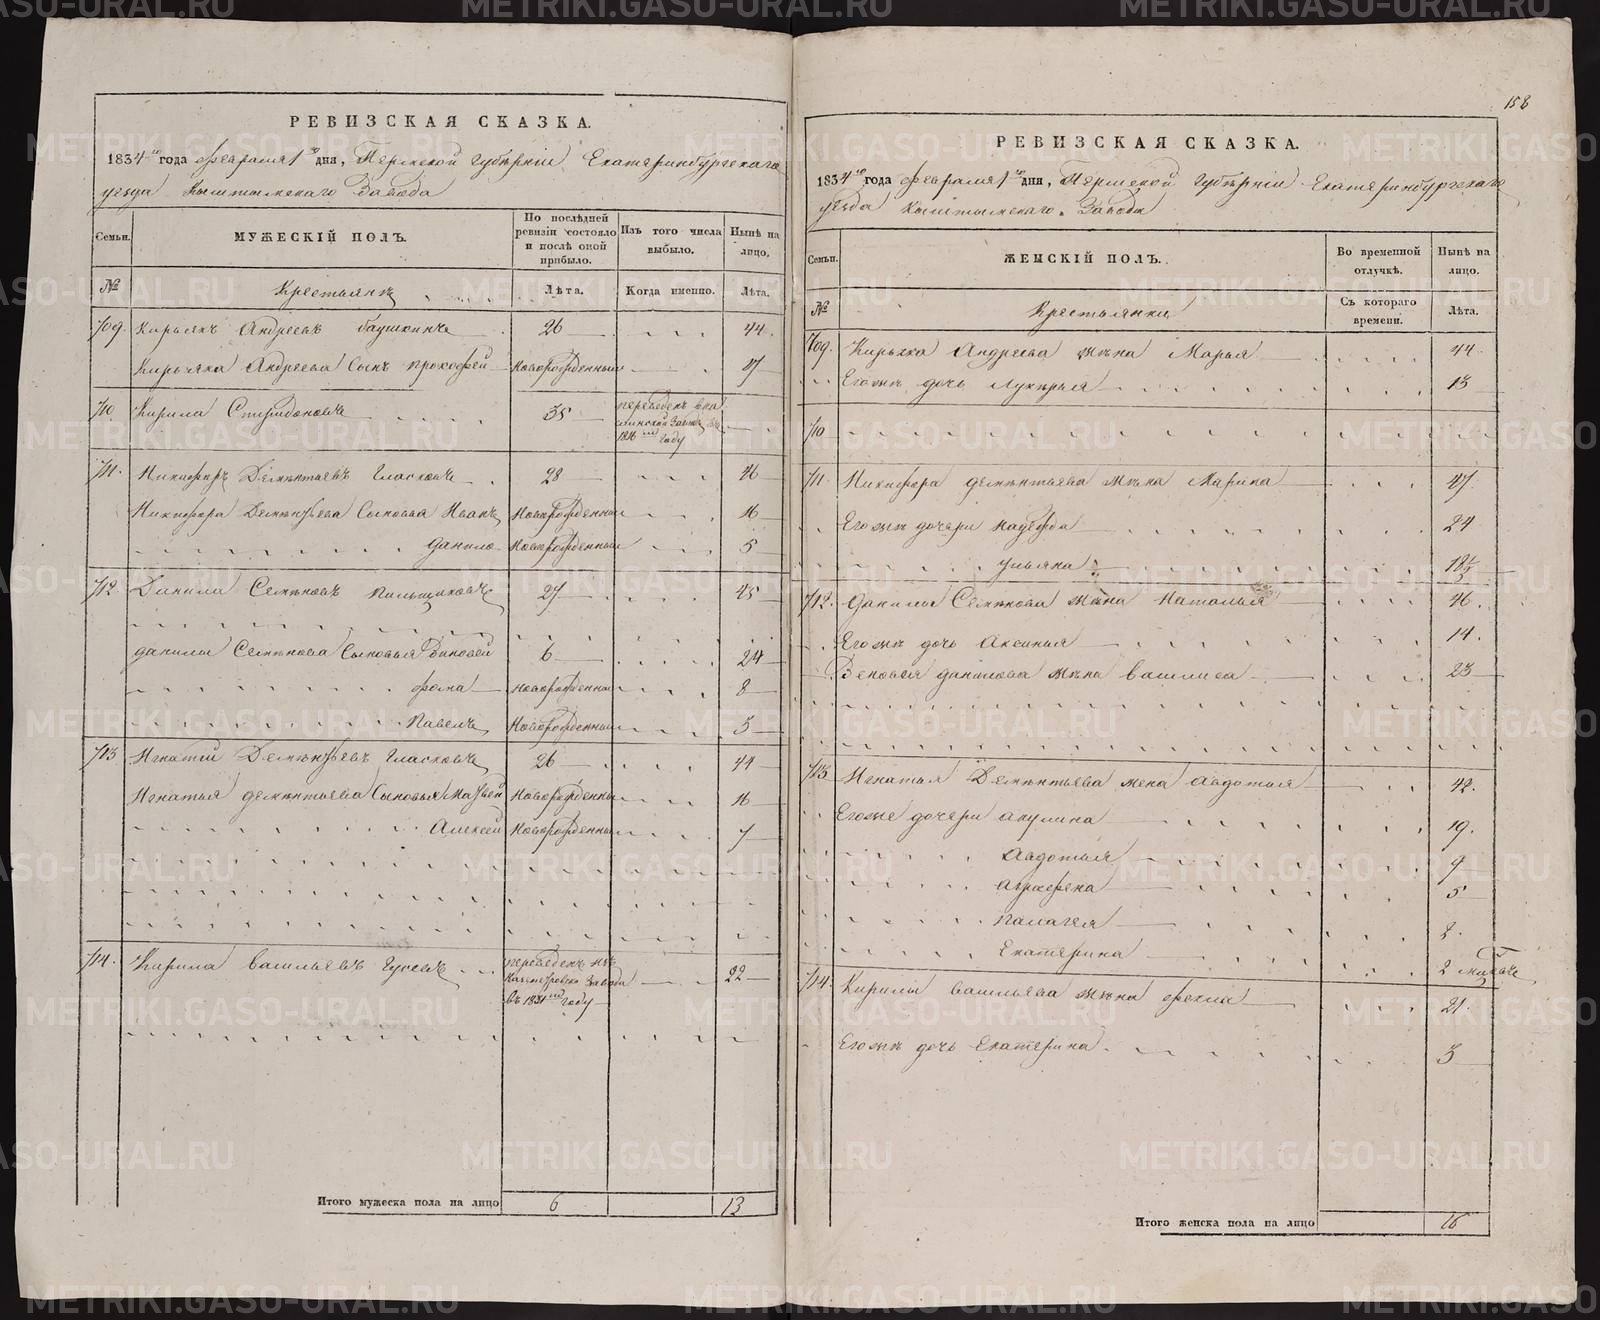 РЕВИЗСКАЯ СКАЗКА.
1834го года февраля 1го дня, Пермской Губѣрніи Екатеринбургскаго
уезда Кыштымскаго Завода
Семьи.
МУЖЕСКІЙ ПОЛЪ.
По послѣдней ревизіи состояло и послѣ оной прибыло.
Изъ того числа выбыло.
Нынѣ на лицо.
№ Крестьянъ Лѣта. Когда именно. Лѣта.
709. Кирьякъ Андреевъ 26 44
Кирьяка Андреева Сынъ прокофей новорожденный 17
710 Кирила Спиридоновъ 35 переведенъ в ка
слинской Заводъ въ
1816 году
711. Никифоръ Дементьевъ Гласковъ 28 46
Никифора Дементьева Сыновья Иванъ Новорожденный 16
данило Новорожденный 5
712. Данила Семеновъ Пильщиковъ 27 45
данилы Семенова Сыновья Зиновей 6 24
фома новорожденный 8
Павелъ Новорожденный 3
713 Игнатей Дементьевъ Гласковъ 26 44
Игнатья дементьева Сыновья Матвей Новорожденный 16
Алексей Новорожденный 7
714. Кирила васильевъ Гусевъ переведенъ изъ 22
Завода
въ 1831 году
Итого мужеска пола на лицо 6 13
158
РЕВИЗСКАЯ СКАЗКА.
1834го года февраля 1го дни, Пермской Губѣрніи Екатеринбургскаго
уезда Кыштымскаго Завода
Семьи.
ЖЕНСКІЙ ПОЛЪ.
Во временной отлучкѣ.
Нынѣ на лицо.
№ Крестьянки Съ котораго времени. Лѣта.
709. Кирьяка Андреева жена Марья 44
Егожъ дочь Лукерья 13
710
711 Никифора дементьева жена Марина 47
Егожъ дочери надежда 24
ульяна
712. Данилы Семенова жена Наталья 46.
Егожъ дочь Аксинья 14.
Зеновья данилова жена василиса 23
713 Игнатья Дементьева жена Авдотья 42.
Егоже дочери акулина 19.
Авдотья 9
аграфена 5
палагея
Екатерина 2
714. Кирилы васильева жена фекла 21.
Егожъ дочь Екатерина. 3
Итого женска пола на лицо 16
METRIKI.GASO-URAL.RU